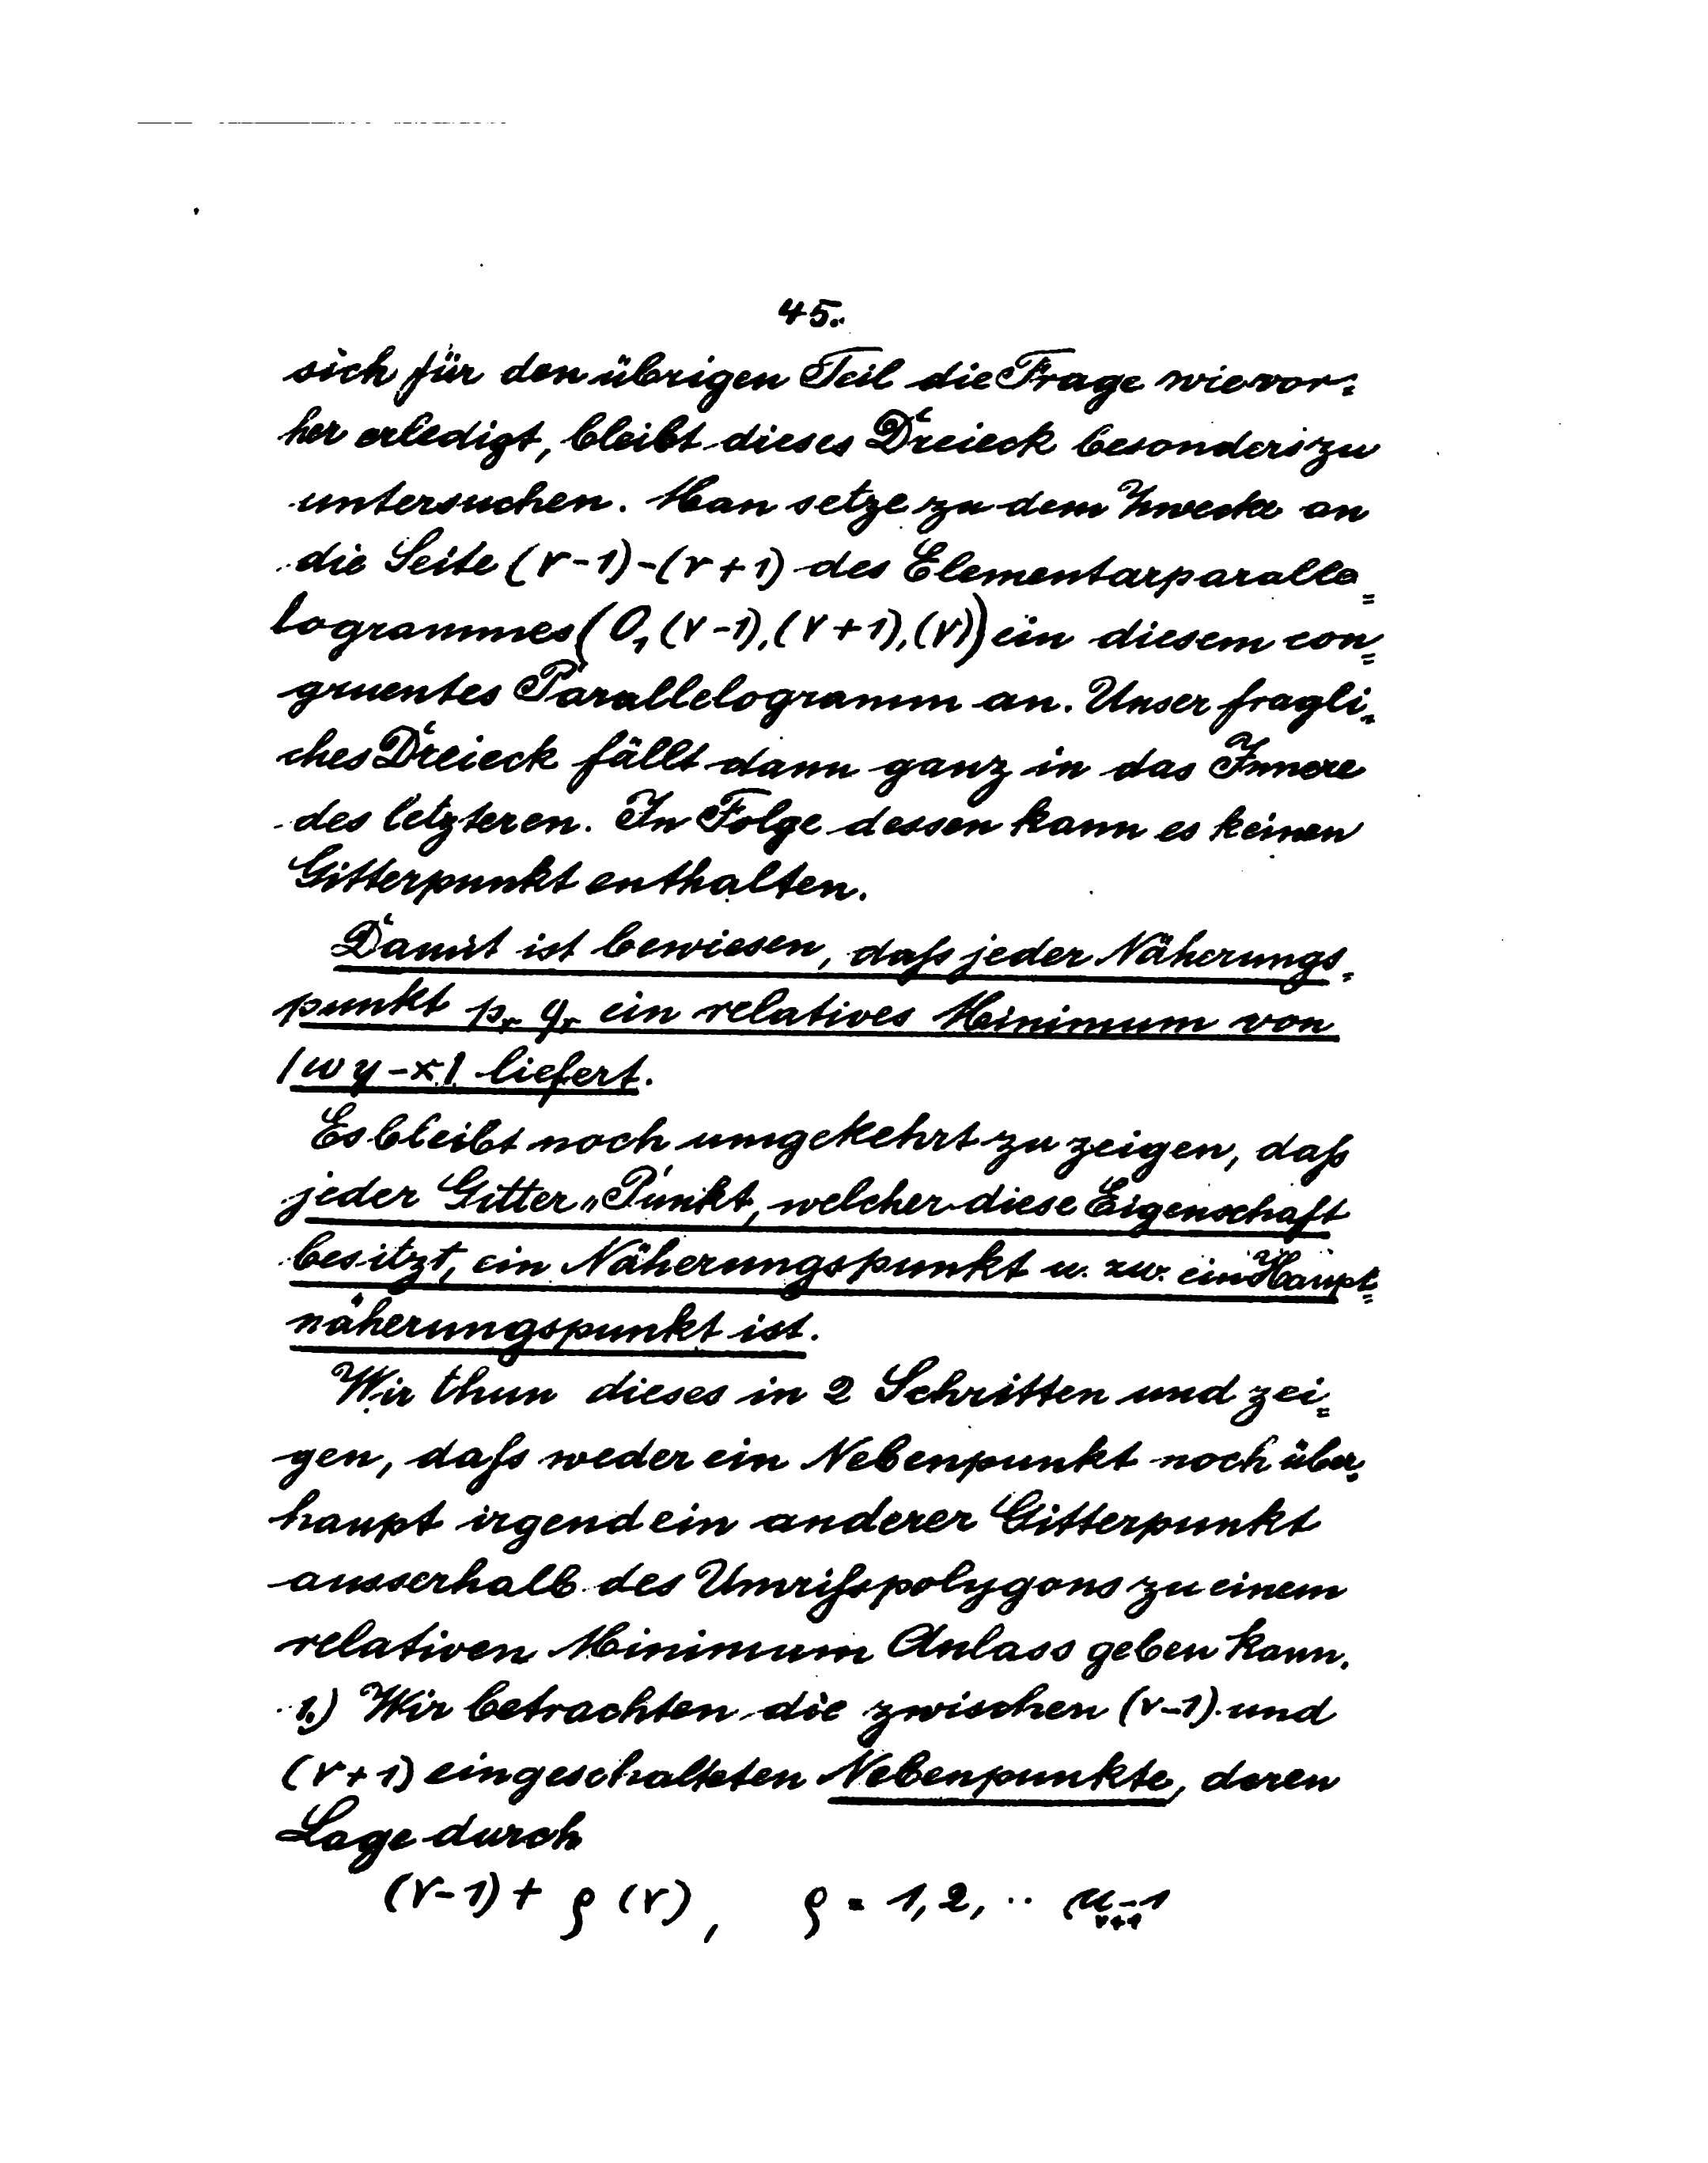 45.
sich für den übrigen Teil die Frage wie vor=
her erledigt, bleibt dieses Dreieck besonders zu
untersuchen. Man setze zu dem Zwecke an
die Seite (r-1)-(r+1) des Elementarparalle=
logrammes (0, (r-1), (r+1), (r)) ein diesem con=
gruentes Parallelogramm an. Unser fragli=
ches Dreieck fällt dann ganz in das Innere
des letzteren. In Folge dessen kann es keinen
Gitterpunkt enthalten.
Damit ist bewiesen, daſs jeder Näherungs=
punkt pᵣ qᵣ ein relatives Minimum von
|ωy-x| liefert.
Es bleibt noch umgekehrt zu zeigen, daſs
jeder Gitter„Punkt, welcher diese Eigenschaft
besitzt, ein Näherungspunkt u. zw. ein Haupt=
näherungspunkt ist.
Wir thun dieses in 2 Schritten und zei=
gen, daſs weder ein Nebenpunkt noch über=
haupt irgend ein anderer Gitterpunkt
ausserhalb des Umriſspolygons zu einem
relativen Minimum Anlass geben kann.
1.) Wir betrachten die zwischen (r-1) und
(r+1) eingeschalteten Nebenpunkte, deren
Lage durch
(r-1) + ρ (r), ρ = 1, 2, .. μᵣ₊₁-1